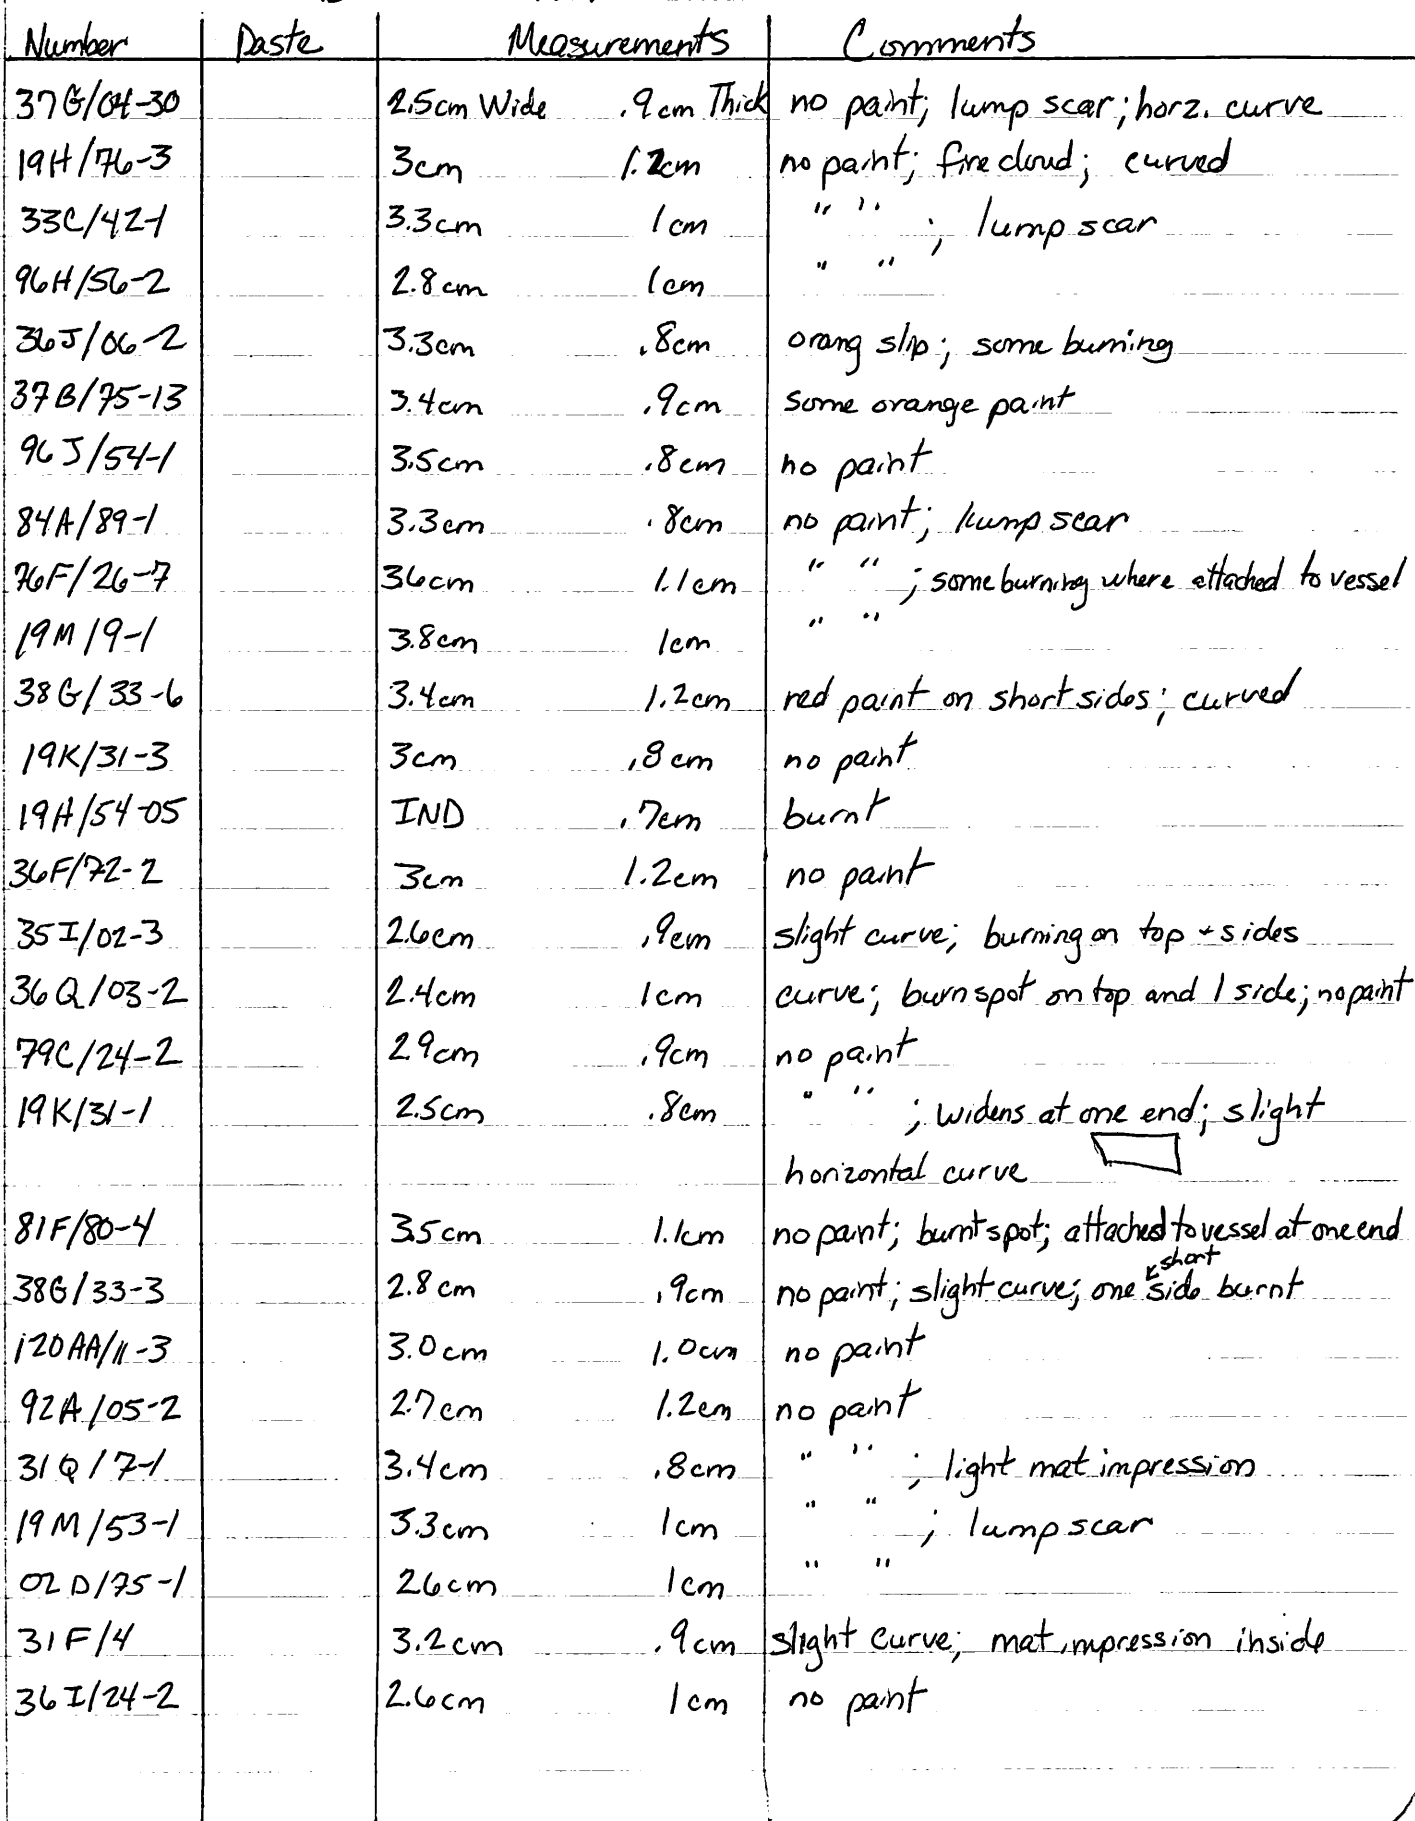 Number Paste Measurements Comments
37G/04-30 2.5cm Wide .9cm Thick no paint; lump scar; horz. curve
19H/76-3 3cm 1.2cm no paint; fire cloud; curved
33C/42-1 3.3cm 1cm " " ; lump scar
96H/56-2 2.8cm 1cm " "
36J/06-2 3.3cm .8cm orang slip; some burning
37B/75-13 3.4cm .9cm some orange paint
96J/54-1 3.5cm .8cm no paint
84A/89-1 3.3cm .8cm no paint; lump scar
76F/26-7 36cm 1.1cm " " ; some burning where attached to vessel
19M/9-1 3.8cm 1cm " "
38G/33-6 3.4cm 1.2cm red paint on short sides; curved
19K/31-3 3cm .8cm no paint
19H/54-05 IND .7cm burnt
36F/72-2 3cm 1.2cm no paint
35I/02-3 2.6cm .9cm slight curve; burning on top + sides
36Q/03-2 2.4cm 1cm curve; burn spot on top and 1 side; no paint
79C/24-2 2.9cm .9cm no paint
19K/31-1 2.5cm .8cm " " ; widens at one end; slight
horizontal curve
81F/80-4 3.5cm 1.1cm no paint; burnt spot; attached to vessel at one end
short
38G/33-3 2.8cm .9cm no paint; slight curve; one side burnt
120AA/11-3 3.0cm 1.0cm no paint
92A/05-2 2.7cm 1.2cm no paint
31Q/7-1 3.4cm .8cm " " ; light mat impression
19M/53-1 3.3cm 1cm " " ; lump scar
02D/75-1 2.6cm 1cm " "
31F/4 3.2cm .9cm slight curve; mat impression inside
36I/24-2 2.6cm 1cm no paint